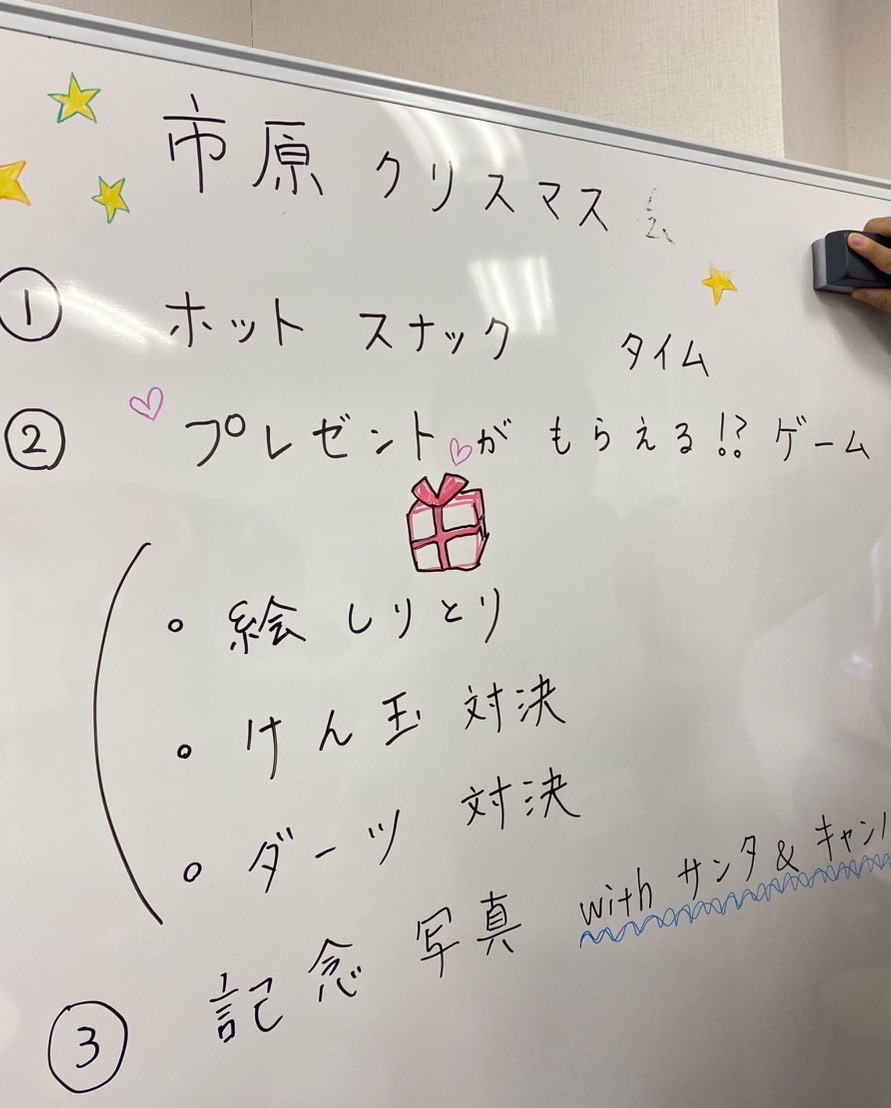 市原 クリスマス
① ホット スナック タイム
② プレゼントがもらえる!? ゲーム
• 絵しりとり
• けん玉 対決
• ダーツ 対決
③ 記念 写真 with サンタ & キャン